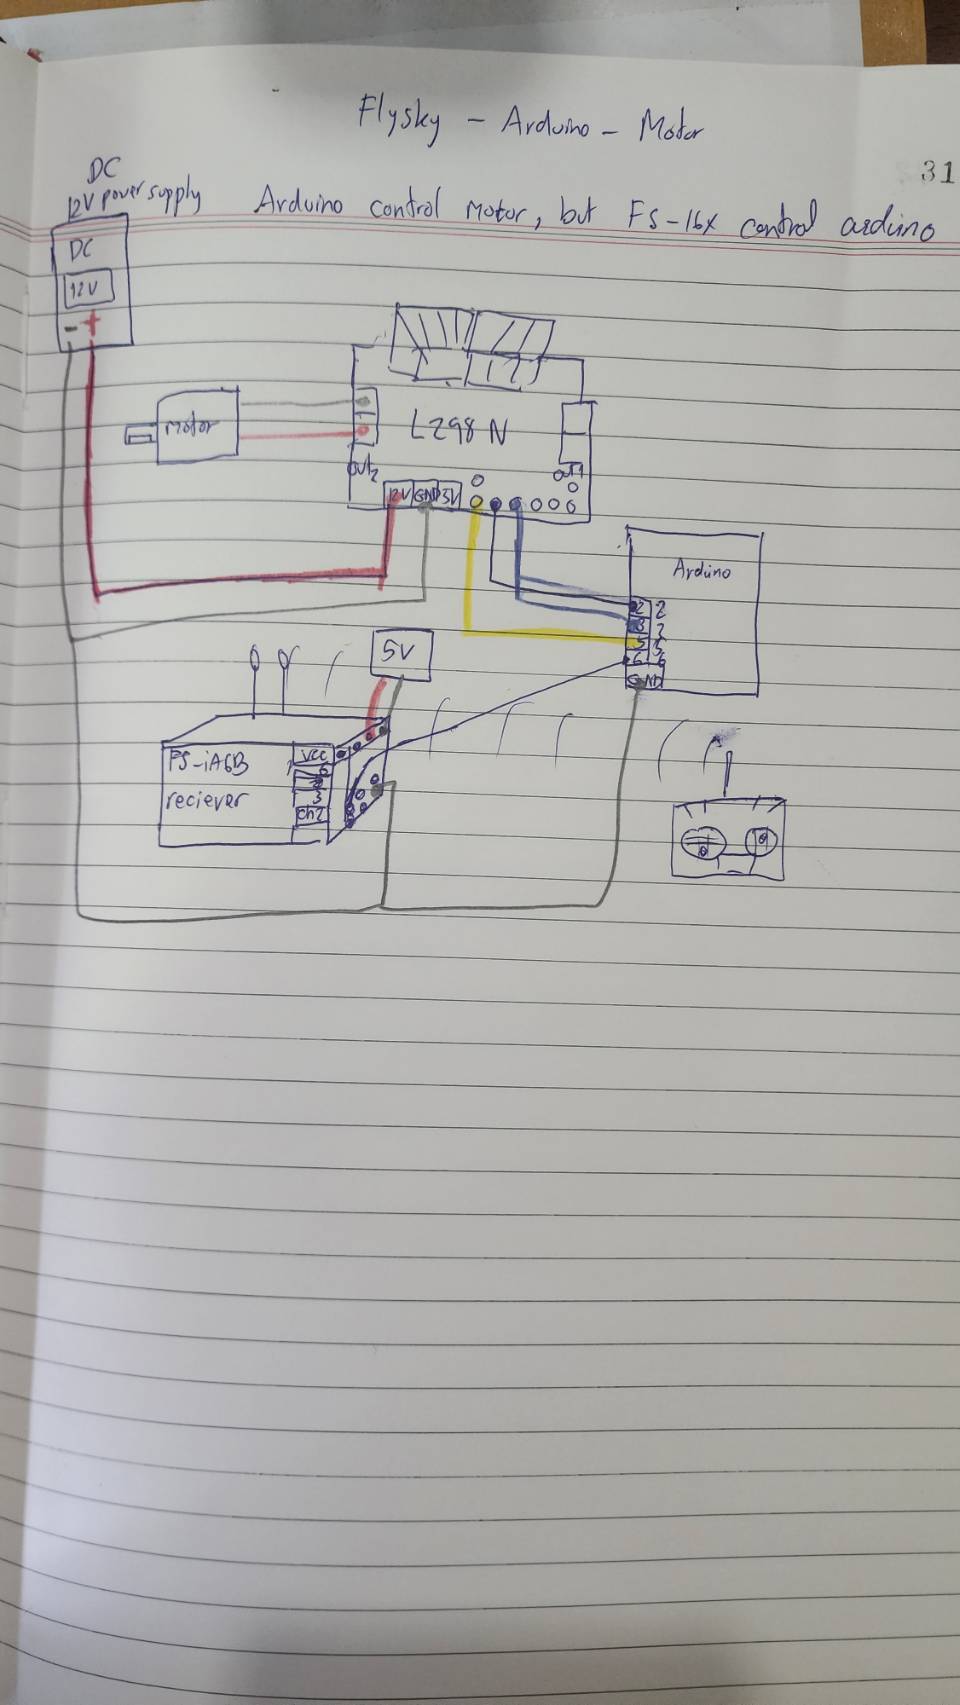 Flysky - Arduino - Motor
31
DC
12V power supply
Arduino control Motor, but FS-16X control arduino
DC
12V
- +
Motor
L298N
out2
out1
12V GND 5V
Arduino
2 2
3 3
5 5
6 6
GND
5V
FS-iA6B
reciever
VCC
6
3
ch2